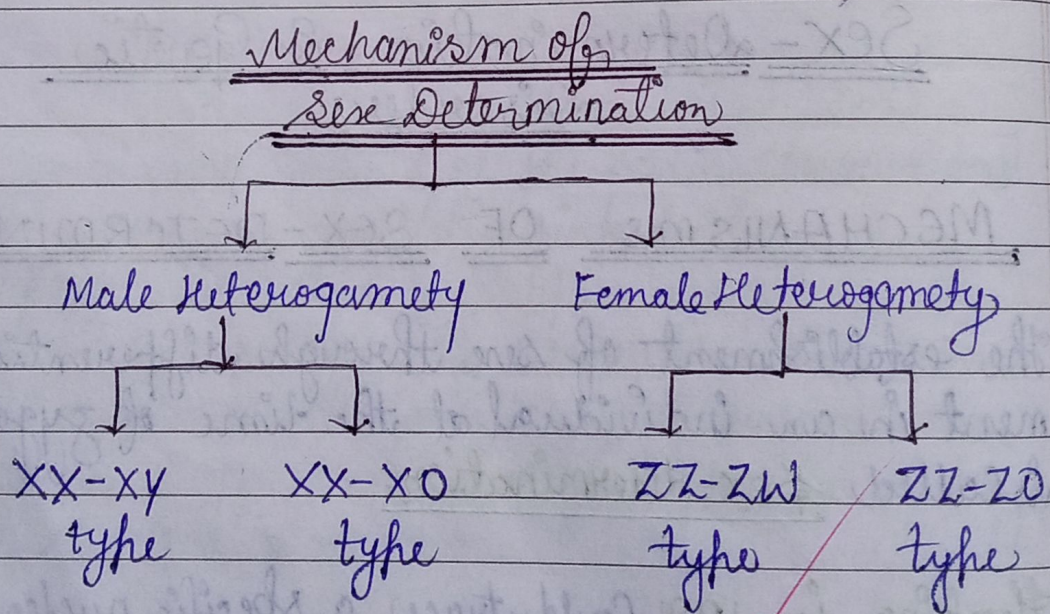 Mechanism of
Sex Determination
Male Heterogamety Female Heterogamety
XX-XY XX-XO ZZ-ZW ZZ-ZO
type type type type